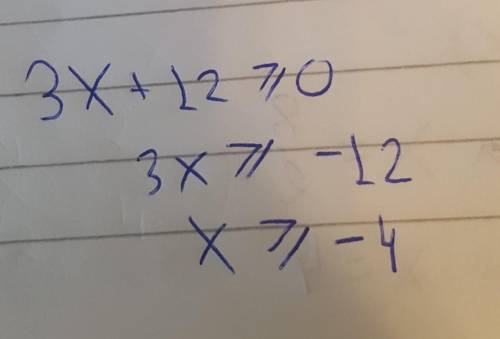 3x + 12 ⩾ 0
3x ⩾ -12
x ⩾ -4